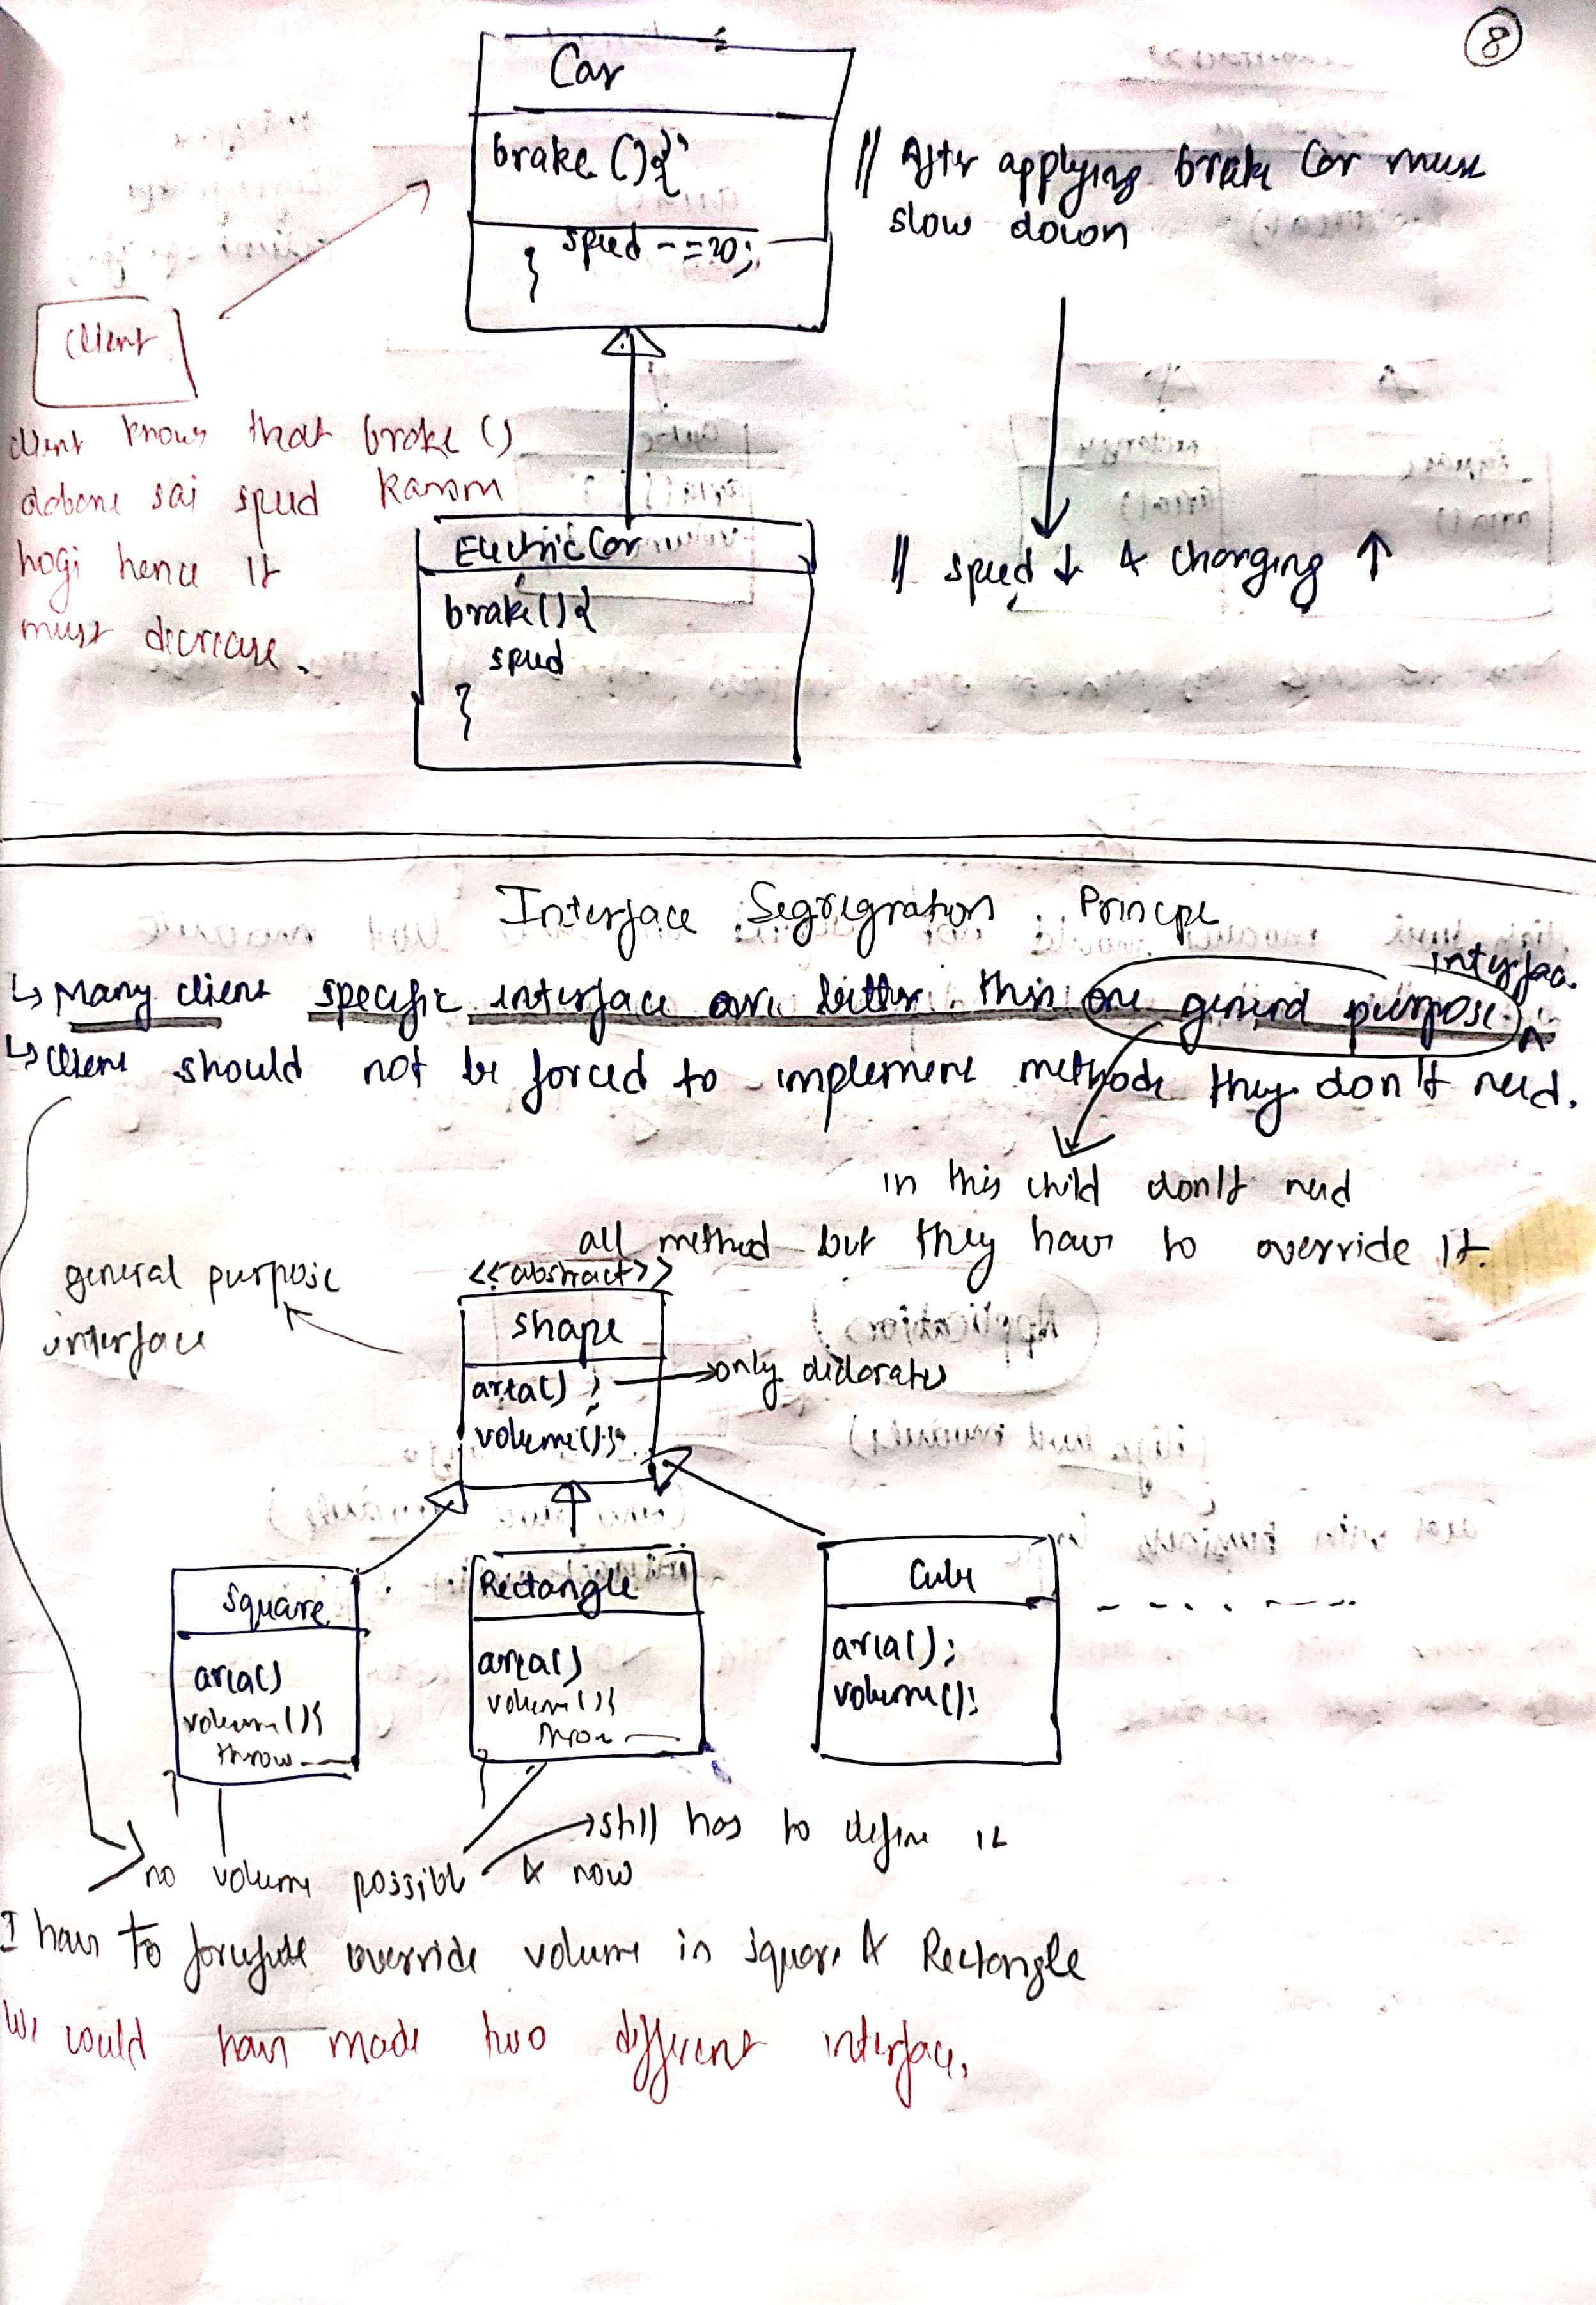 8
Car
brake () {
speed -= 20;
}
// After applying brake Car must
slow down
Client
client knows that brake ()
dabane sai speed kamm
hogi hence it
must decrease.
Electric Car
brake () {
speed
}
// speed ↓ & charging ↑
Interface Segregration Principe
↳ Many client specific interface are better than one general purpose interface
↳ client should not be forced to implement methods they don't need.
in this child don't need
all method but they have to override it.
general purpose
interface
<<abstract>>
shape
area() ;
volume();
→ only declorates
Square
area()
volume(){
throw —
}
Rectangle
area()
volume(){
throw —
}
Cube
area();
volume();
no volume possible & now
→ still has to define it
I have to override volume in square & Rectangle
We could have made two different interface.